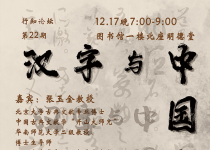 行知论坛
第22期
12.17晚7:00-9:00
图书馆一楼北座明德堂
汉字与中国
嘉宾：张玉金教授
北京大学古典文献专业博士
华南师范大学二级教授
博士生导师